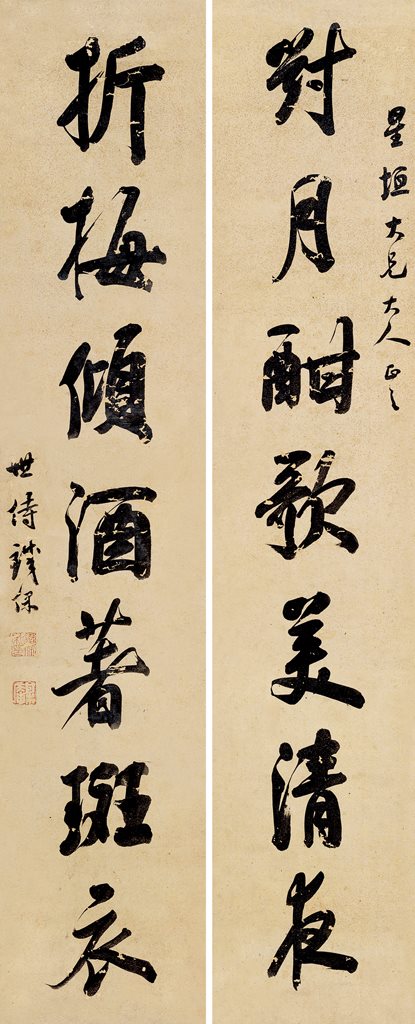 星垣大兄大人正之
對月酣歌美清夜
折梅傾酒著斑衣
世侍鐵保